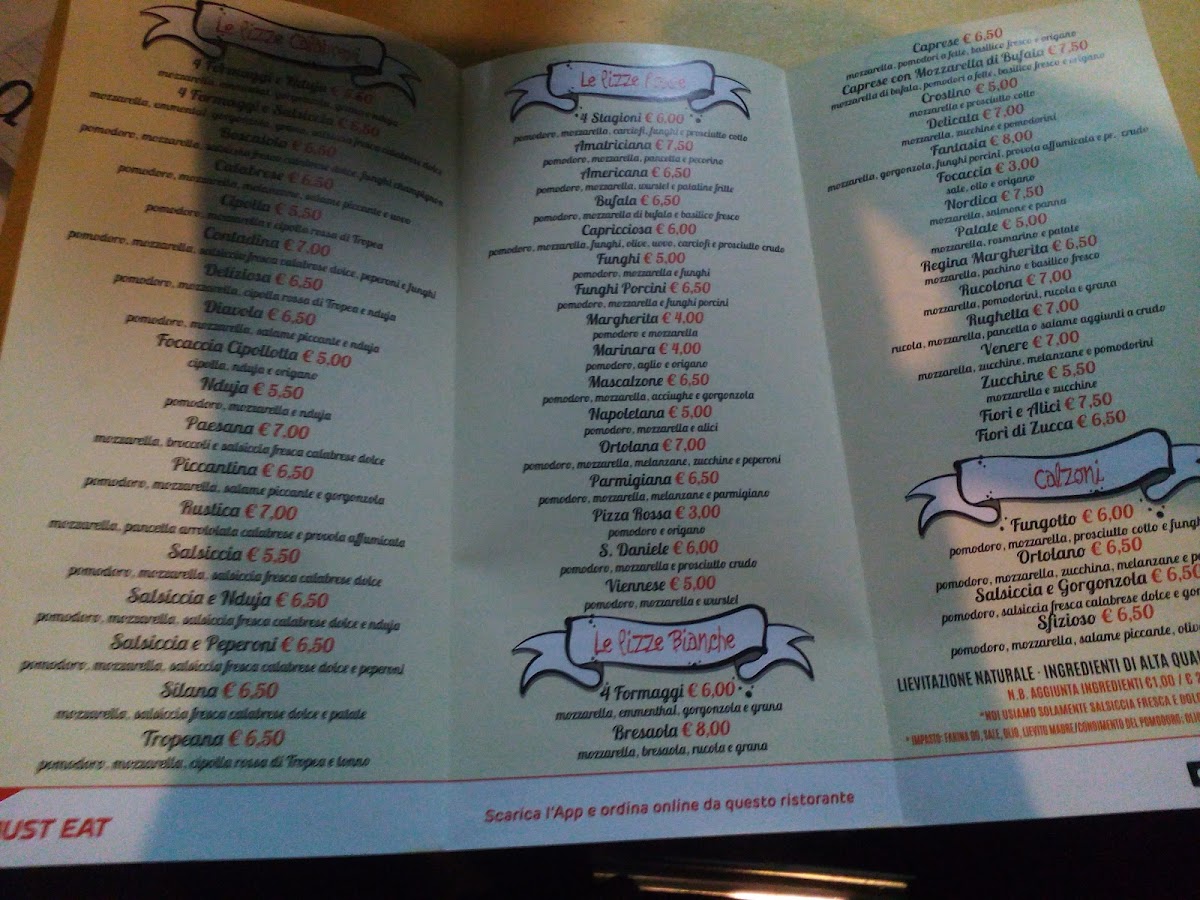 Le Pizze Calabresi
4 Formaggi e Nduja
mozzarella, emmental, gorgonzola, grana e nduja
4 Formaggi e Salsiccia € 6,50
mozzarella, emmental, gorgonzola, grana, salsiccia fresca calabrese dolce
Boscaiola € 6,50
pomodoro, mozzarella, salsiccia fresca calabrese dolce, funghi champignon
Calabrese € 6,50
pomodoro, mozzarella, melanzane, salame piccante e uovo
Cipolla € 5,50
pomodoro, mozzarella e cipolla rossa di Tropea
Contadina € 7,00
pomodoro, mozzarella, salsiccia fresca calabrese dolce, peperoni e funghi
Deliziosa € 6,50
pomodoro, mozzarella, cipolla rossa di Tropea e nduja
Diavola € 6,50
pomodoro, mozzarella, salame piccante e nduja
Focaccia Cipollotta € 5,00
cipolla, nduja e origano
Nduja € 5,50
pomodoro, mozzarella e nduja
Paesana € 7,00
mozzarella, broccoli e salsiccia fresca calabrese dolce
Piccantina € 6,50
pomodoro, mozzarella, salame piccante e gorgonzola
Rustica € 7,00
mozzarella, pancetta arrotolata calabrese e provola affumicata
Salsiccia € 5,50
pomodoro, mozzarella, salsiccia fresca calabrese dolce
Salsiccia e Nduja € 6,50
pomodoro, mozzarella, salsiccia fresca calabrese dolce e nduja
Salsiccia e Peperoni € 6,50
pomodoro, mozzarella, salsiccia fresca calabrese dolce e peperoni
Silana € 6,50
mozzarella, salsiccia fresca calabrese dolce e patate
Tropeana € 6,50
pomodoro, mozzarella, cipolla rossa di Tropea e tonno
Le Pizze Rosse
4 Stagioni € 6,00
pomodoro, mozzarella, carciofi, funghi e prosciutto cotto
Amatriciana € 7,50
pomodoro, mozzarella, pancetta e pecorino
Americana € 6,50
pomodoro, mozzarella, wurstel e patatine fritte
Bufala € 6,50
pomodoro, mozzarella di bufala e basilico fresco
Capricciosa € 6,00
pomodoro, mozzarella, funghi, olive, uovo, carciofi e prosciutto crudo
Funghi € 5,00
pomodoro, mozzarella e funghi
Funghi Porcini € 6,50
pomodoro, mozzarella e funghi porcini
Margherita € 4,00
pomodoro e mozzarella
Marinara € 4,00
pomodoro, aglio e origano
Mascalzone € 6,50
pomodoro, mozzarella, acciughe e gorgonzola
Napoletana € 5,00
pomodoro, mozzarella e alici
Ortolana € 7,00
pomodoro, mozzarella, melanzane, zucchine e peperoni
Parmigiana € 6,50
pomodoro, mozzarella, melanzane e parmigiano
Pizza Rossa € 3,00
pomodoro e origano
S. Daniele € 6,00
pomodoro, mozzarella e prosciutto crudo
Viennese € 5,00
pomodoro, mozzarella e wurstel
Le Pizze Bianche
4 Formaggi € 6,00
mozzarella, emmenthal, gorgonzola e grana
Bresaola € 8,00
mozzarella, bresaola, rucola e grana
Caprese € 6,50
mozzarella, pomodori a fette, basilico fresco e origano
Caprese con Mozzarella di Bufala € 7,50
mozzarella di bufala, pomodori a fette, basilico fresco e origano
Crostino € 5,00
mozzarella e prosciutto cotto
Delicata € 7,00
mozzarella, zucchine e pomodorini
Fantasia € 8,00
mozzarella, gorgonzola, funghi porcini, provola affumicata e pr. crudo
Focaccia € 3,00
sale, olio e origano
Nordica € 7,50
mozzarella, salmone e panna
Patate € 5,00
mozzarella, rosmarino e patate
Regina Margherita € 6,50
mozzarella, pachino e basilico fresco
Rucolona € 7,00
mozzarella, pomodorini, rucola e grana
Rughetta € 7,00
rucola, mozzarella, pancetta o salame aggiunti a crudo
Venere € 7,00
mozzarella, zucchine, melanzane e pomodorini
Zucchine € 5,50
mozzarella e zucchine
Fiori e Alici € 7,50
Fiori di Zucca € 6,50
Calzoni
Fungotto € 6,00
pomodoro, mozzarella, prosciutto cotto e fungh
Ortolano € 6,50
pomodoro, mozzarella, zucchina, melanzane e pe
Salsiccia e Gorgonzola € 6,50
pomodoro, salsiccia fresca calabrese dolce e gor
Sfizioso € 6,50
pomodoro, mozzarella, salame piccante, olive
LIEVITAZIONE NATURALE - INGREDIENTI DI ALTA QUAL
N.B. AGGIUNTA INGREDIENTI €1,00 / € 2
*NOI USIAMO SOLAMENTE SALSICCIA FRESCA E DOLC
* IMPASTO: FARINA 00, SALE, OLIO, LIEVITO MADRE/CONDIMENTO DEL POMODORO: OLI
JUST EAT
Scarica l'App e ordina online da questo ristorante